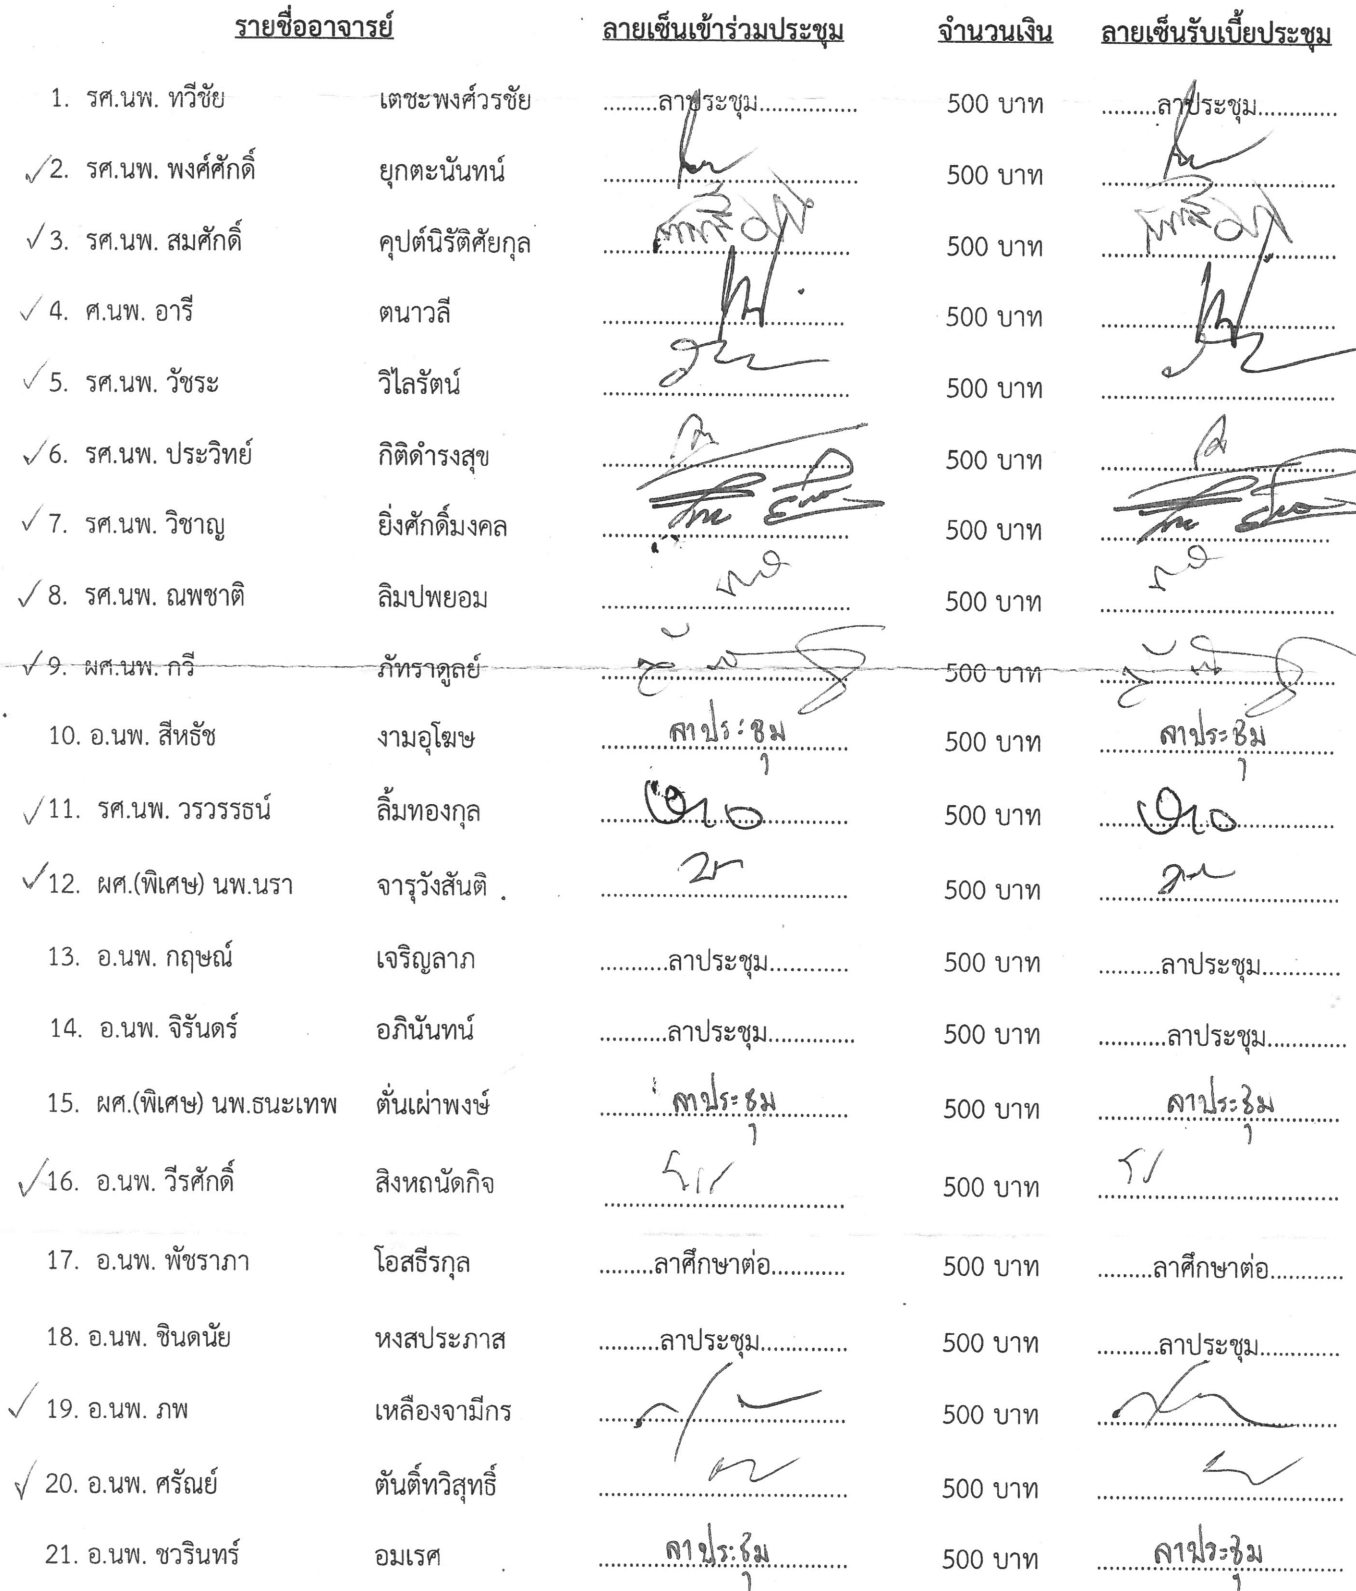 รายชื่ออาจารย์ ลายเซ็นเข้าร่วมประชุม จำนวนเงิน ลายเซ็นรับเบี้ยประชุม
1. รศ.นพ. ทวีชัย เตชะพงศ์วรชัย .........ลาประชุม............... 500 บาท .........ลาประชุม.............
✓2. รศ.นพ. พงศ์ศักดิ์ ยุกตะนันทน์ 500 บาท
✓3. รศ.นพ. สมศักดิ์ คุปต์นิรัติศัยกุล 500 บาท
✓4. ศ.นพ. อารี ตนาวลี 500 บาท
✓5. รศ.นพ. วัชระ วิไลรัตน์ 500 บาท
✓6. รศ.นพ. ประวิทย์ กิติดำรงสุข 500 บาท
✓7. รศ.นพ. วิชาญ ยิ่งศักดิ์มงคล 500 บาท
✓8. รศ.นพ. ณพชาติ ลิมปพยอม 500 บาท
✓9. ผศ.นพ. กวี ภัทราดูลย์ 500 บาท
10. อ.นพ. สีหธัช งามอุโฆษ ลาประชุม 500 บาท ลาประชุม
✓11. รศ.นพ. วรวรรธน์ ลิ้มทองกุล 500 บาท
✓12. ผศ.(พิเศษ) นพ.นรา จารุวังสันติ 500 บาท
13. อ.นพ. กฤษณ์ เจริญลาภ ..........ลาประชุม............ 500 บาท .........ลาประชุม............
14. อ.นพ. จิรันดร์ อภินันทน์ ..........ลาประชุม............. 500 บาท ..........ลาประชุม............
15. ผศ.(พิเศษ) นพ.ธนะเทพ ตั่นเผ่าพงษ์ ลาประชุม 500 บาท ลาประชุม
✓16. อ.นพ. วีรศักดิ์ สิงหถนัดกิจ 500 บาท
17. อ.นพ. พัชราภา โอสธีรกุล ........ลาศึกษาต่อ........... 500 บาท ........ลาศึกษาต่อ...........
18. อ.นพ. ชินดนัย หงสประภาส .........ลาประชุม............. 500 บาท .........ลาประชุม............
✓19. อ.นพ. ภพ เหลืองจามีกร 500 บาท
✓20. อ.นพ. ศรัณย์ ตันติ์ทวิสุทธิ์ 500 บาท
21. อ.นพ. ชวรินทร์ อมเรศ ลาประชุม 500 บาท ลาประชุม